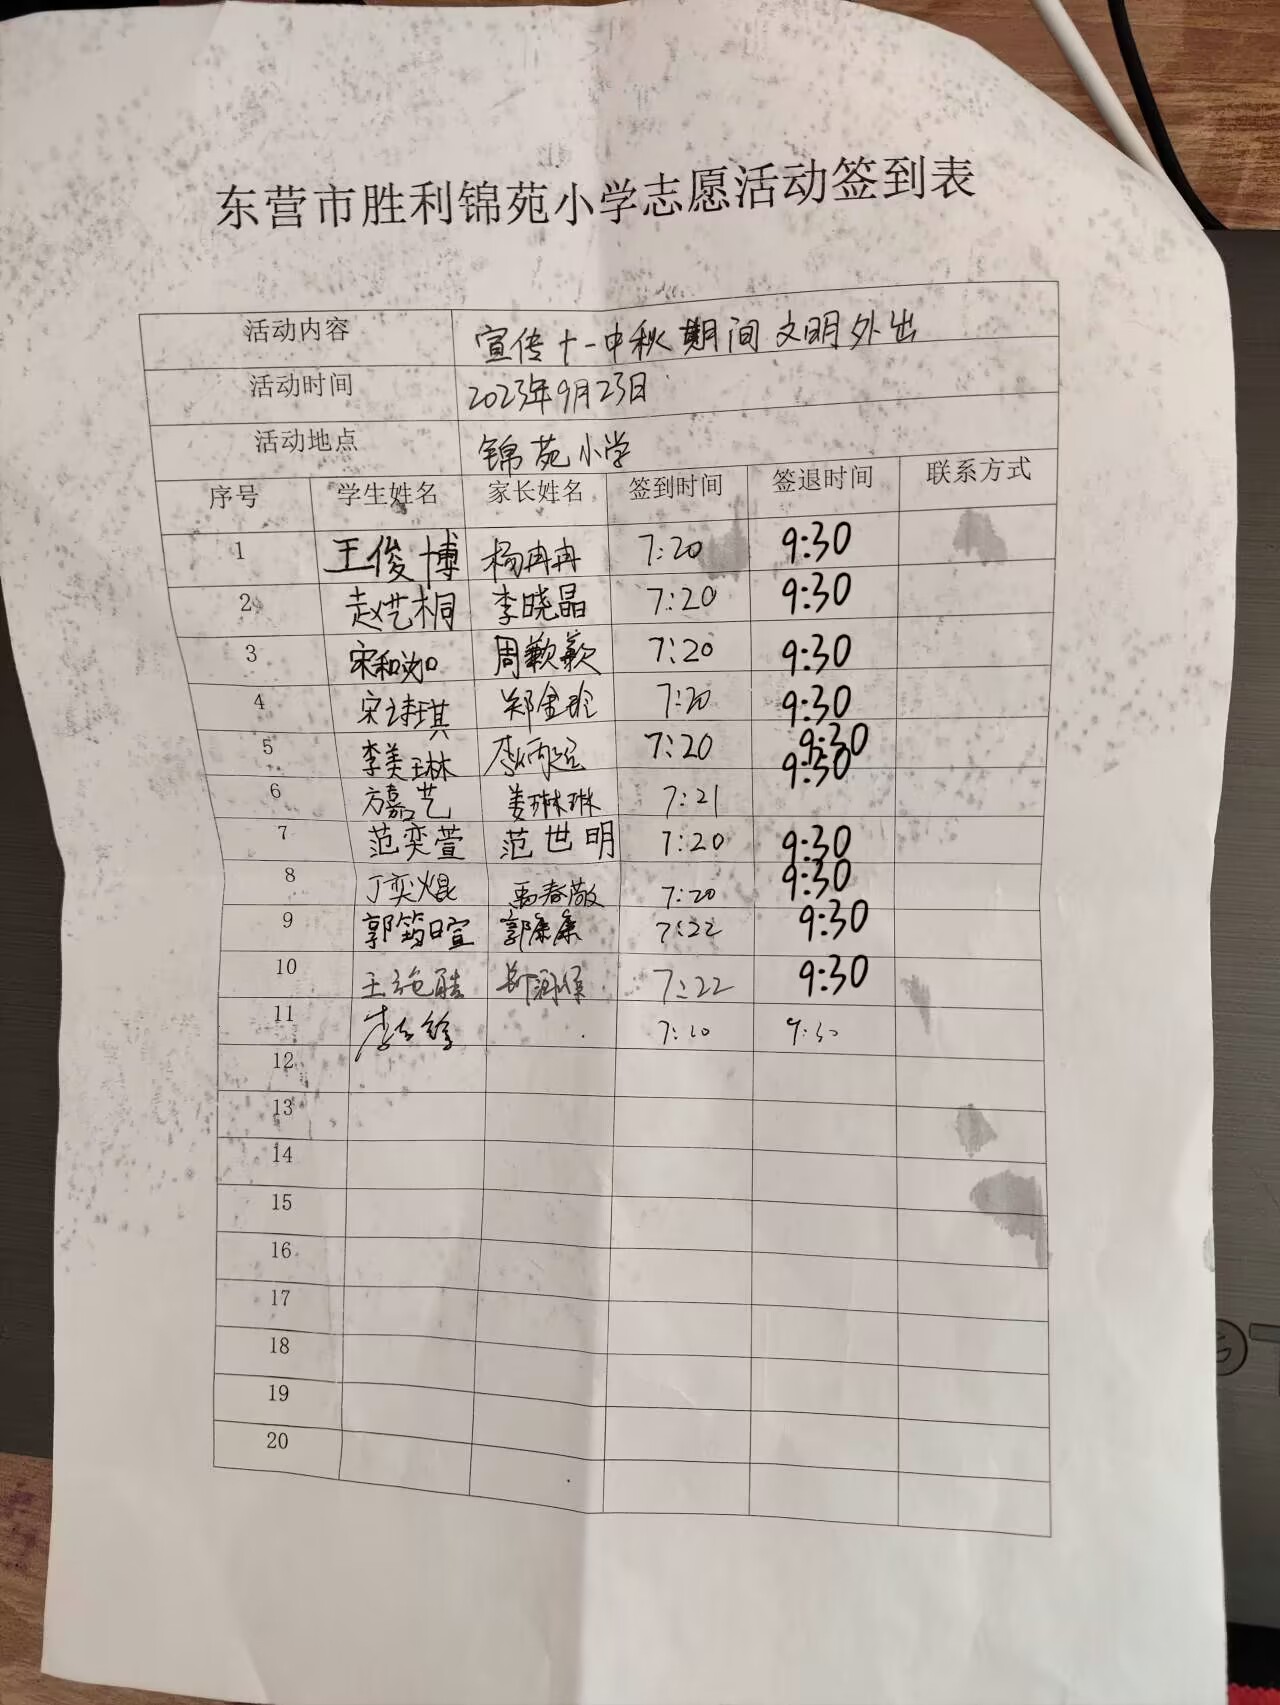 东营市胜利锦苑小学志愿活动签到表
活动内容 宣传十一中秋期间文明外出
活动时间 2023年9月23日
活动地点 锦苑小学
序号 学生姓名 家长姓名 签到时间 签退时间 联系方式
1 王俊博 杨冉冉 7:20 9:30
2 赵艺桐 李晓晶 7:20 9:30
3 宋和如 周歉歉 7:20 9:30
4 宋诗琪 郑金玲 7:20 9:30
5 李美琳 7:20 9:30
6 方嘉艺 姜琳琳 7:21 9:30
7 范奕萱 范世明 7:20 9:30
8 丁奕焜 禹春敬 7:20 9:30
9 郭筠暄 郭康康 7:22 9:30
10 王 7:22 9:30
11 李 7:20 9:30
12
13
14
15
16
17
18
19
20